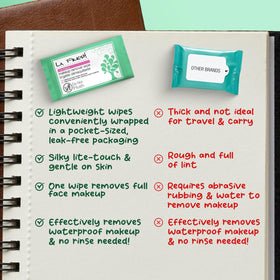 La Fresh
OTHER BRANDS
Lightweight wipes
conveniently wrapped
in a pocket-sized,
leak-free packaging
Thick and not ideal
for travel & carry
Silky lite-touch &
gentle on skin
Rough and full
of lint
One wipe removes full
face makeup
Requires abrasive
rubbing & water to
remove makeup
Effectively removes
waterproof makeup
& no rinse needed!
Effectively removes
waterproof makeup
& no rinse needed!